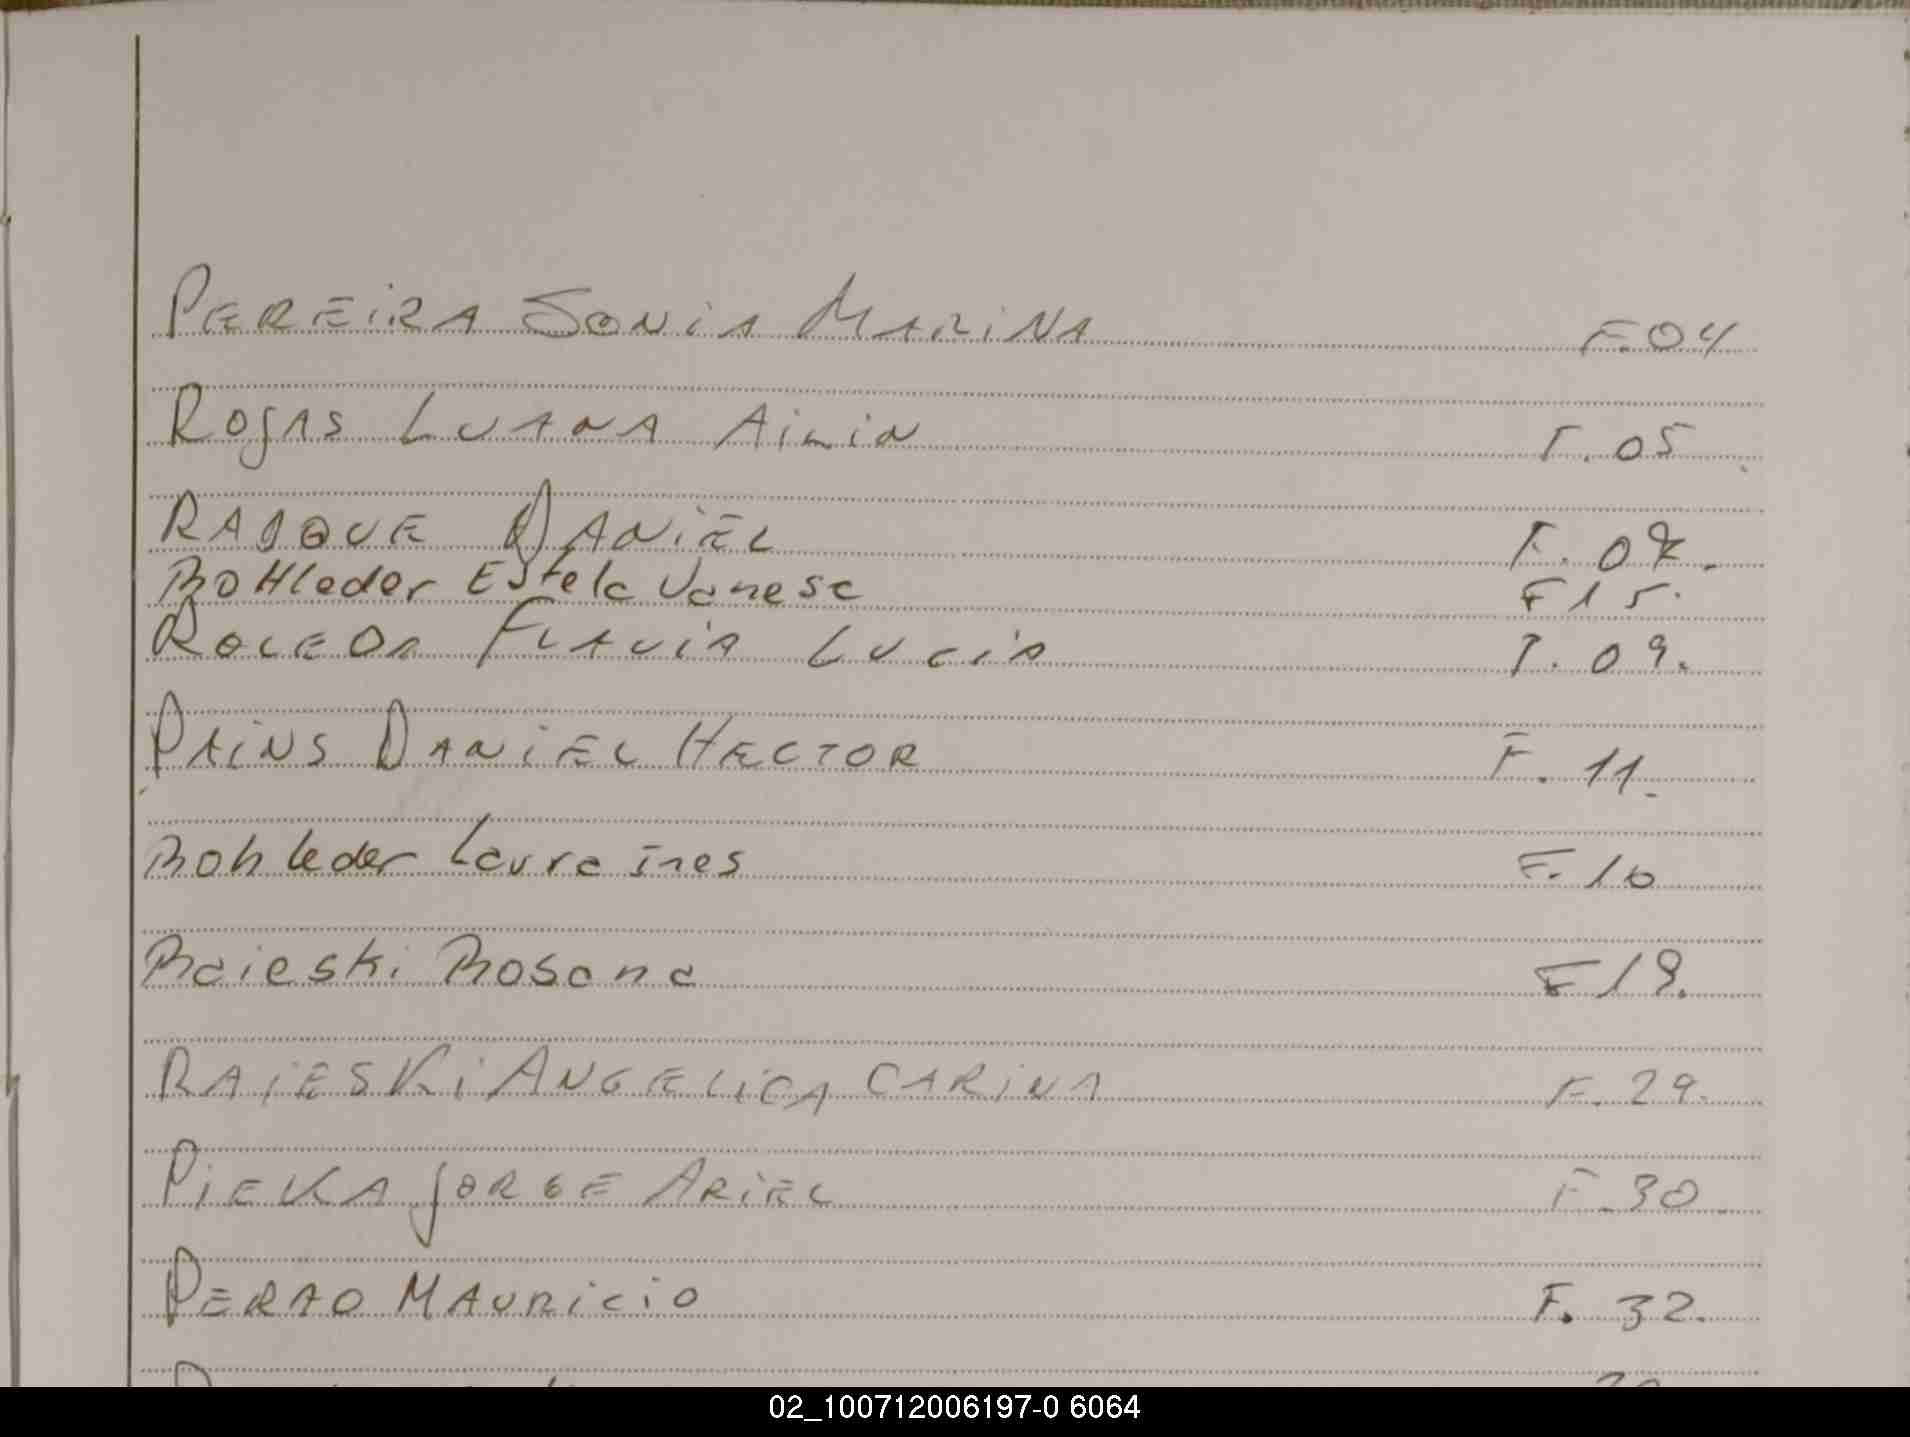 PEREiRA SONiA MARiNA F.04
ROJAS LUANA AiLiN F.05
DANiEL F.07.
ROHleder Estela Vanesa F15.
FLAViA LUCiA F.09.
PAiNS DANiEL HECTOR F. 11.
Rohleder Laura ines F. 16
Raieski Rosana F19.
RAiESKi ANGELiCA CARiNA F. 29.
PiEKA JORGE ARiEL F.30
PERAO MAURiCiO F. 32.
02_100712006197-0 6064